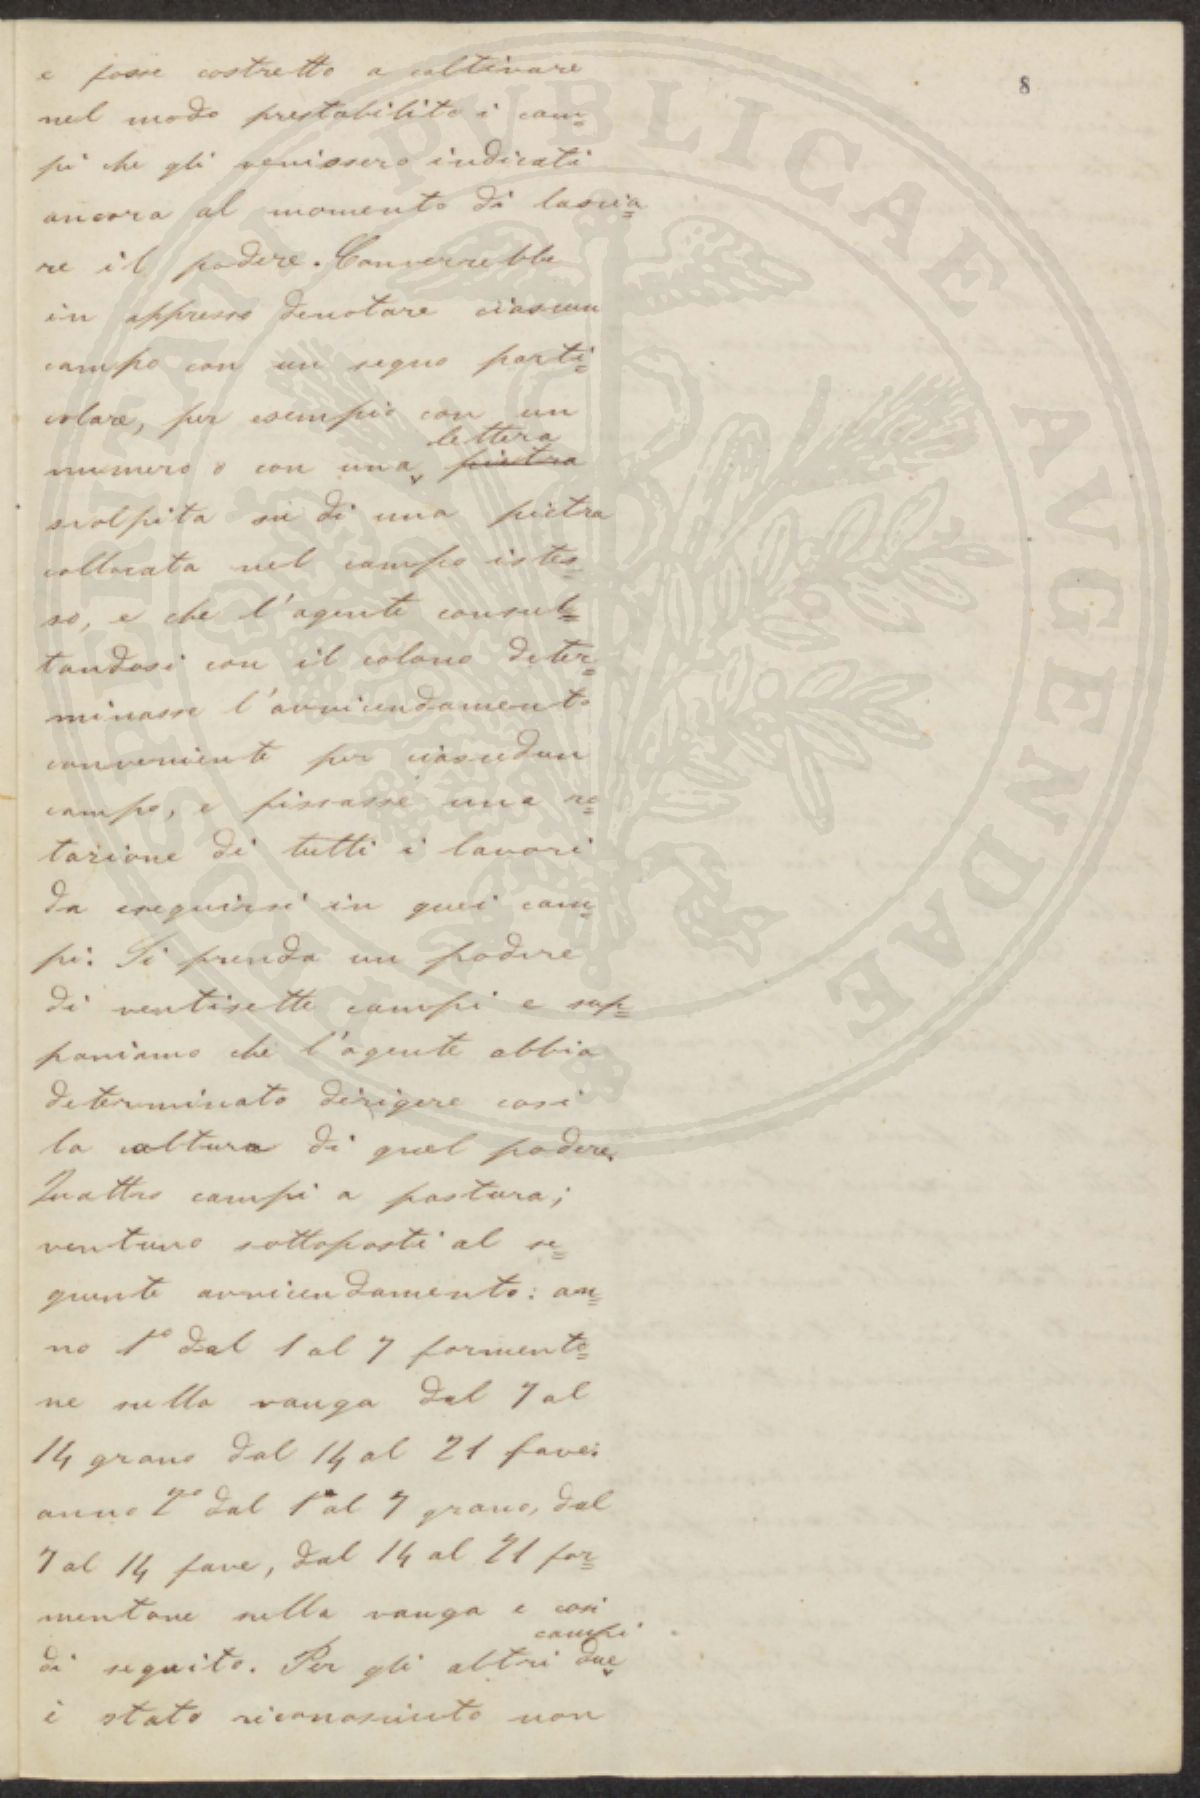 8
e fosse costretto a coltivare
nel modo prestabilito i cam=
pi che gli venissero indicati
ancora al momento di lascia=
re il podere. Converrebbe
in appresso denotare ciascun
campo con un segno parti=
colare, per esempio con un
lettera
numero o con una pietra
scolpita su di una pietra
collocata nel campo istes=
so, e che l'agente consul=
tandosi con il colono deter=
minasse l'avvicendamento
conveniente per ciascedun
campo, e fissasse una no=
tazione di tutti i lavori
da eseguirsi in quei cam=
pi. Si prenda un podere
di ventisette campi e sup=
poniamo che l'agente abbia
determinato dirigere così
la coltura di quel podere.
Quattro campi a pastura;
ventuno sottoposti al se=
guente avvicendamento: an=
no 1º dal 1 al 7 formento=
ne sulla vanga dal 7 al
14 grano dal 14 al 21 fave:
anno 2º dal 1º al 7 grano, dal
7 al 14 fave, dal 14 al 21 for=
mentone sulla vanga e così
campi
di seguito. Per gli altri due
è stato riconosciuto non
PUBLICAE AVGENDAE